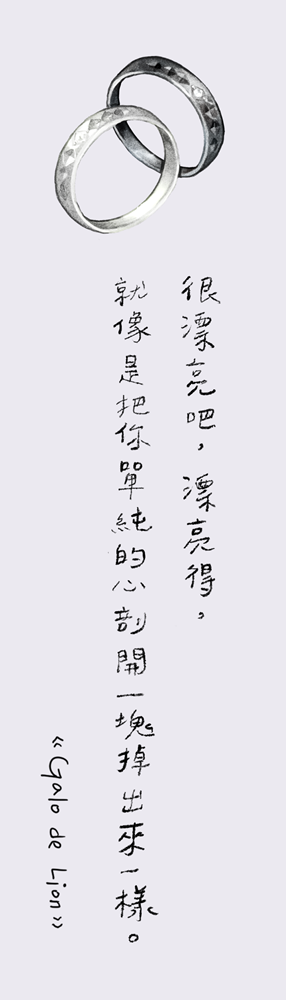 很漂亮吧，漂亮得，
就像是把你單純的心剖開一塊掉出來一樣。
《Galo de Lion》